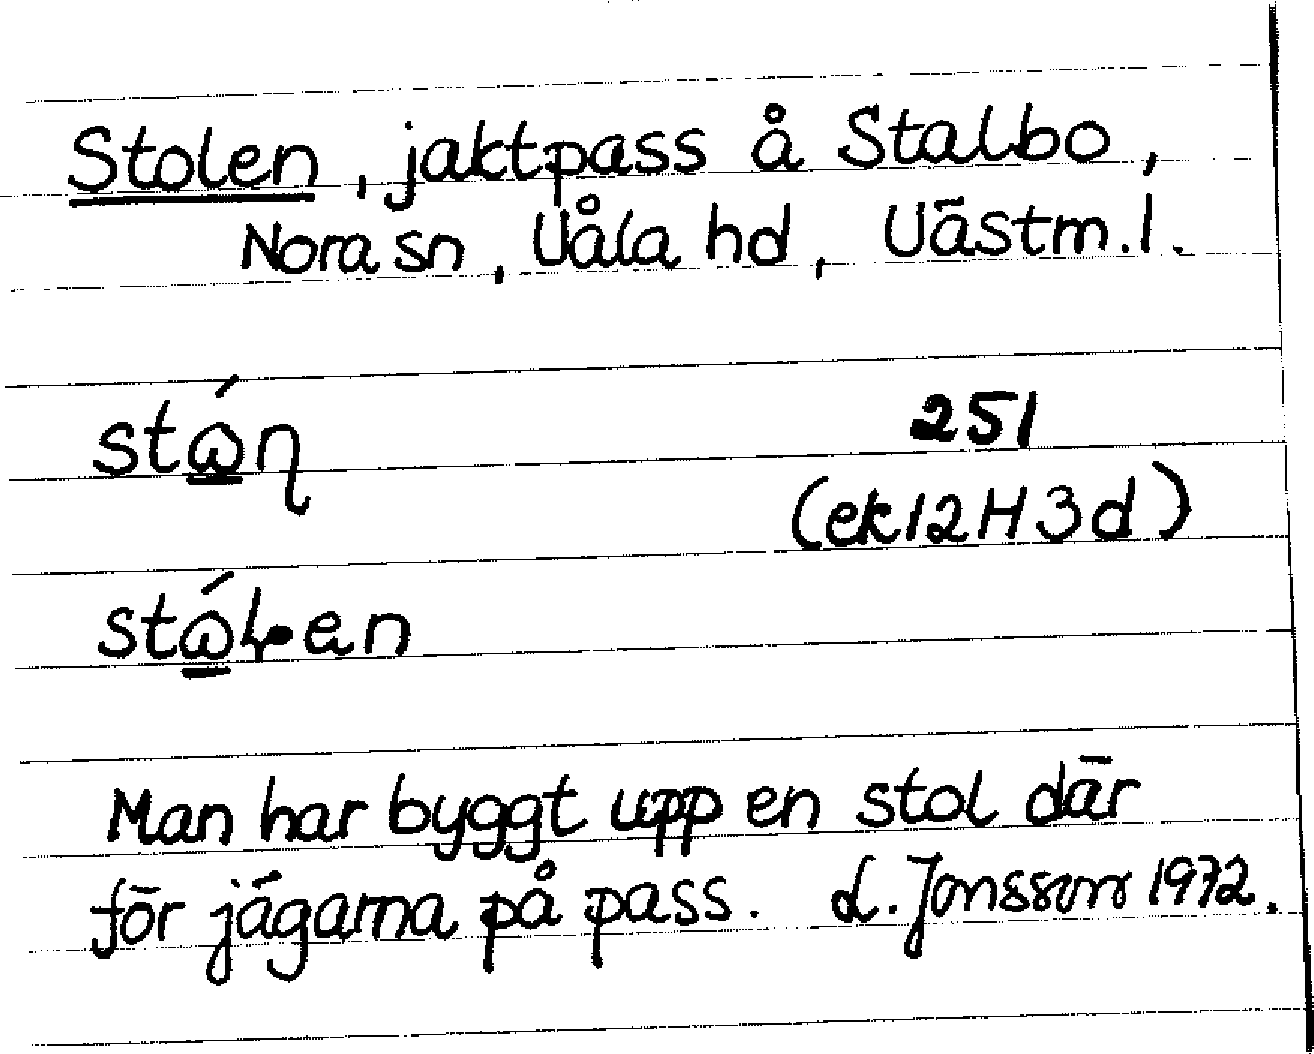 Stolen, jaktpass å Stalbo,
Nora sn, Våla hd, Västm. l.
251
(ek 12H3d)
Man har byggt upp en stol där
för jägarna på pass. L. Jonsson 1972.